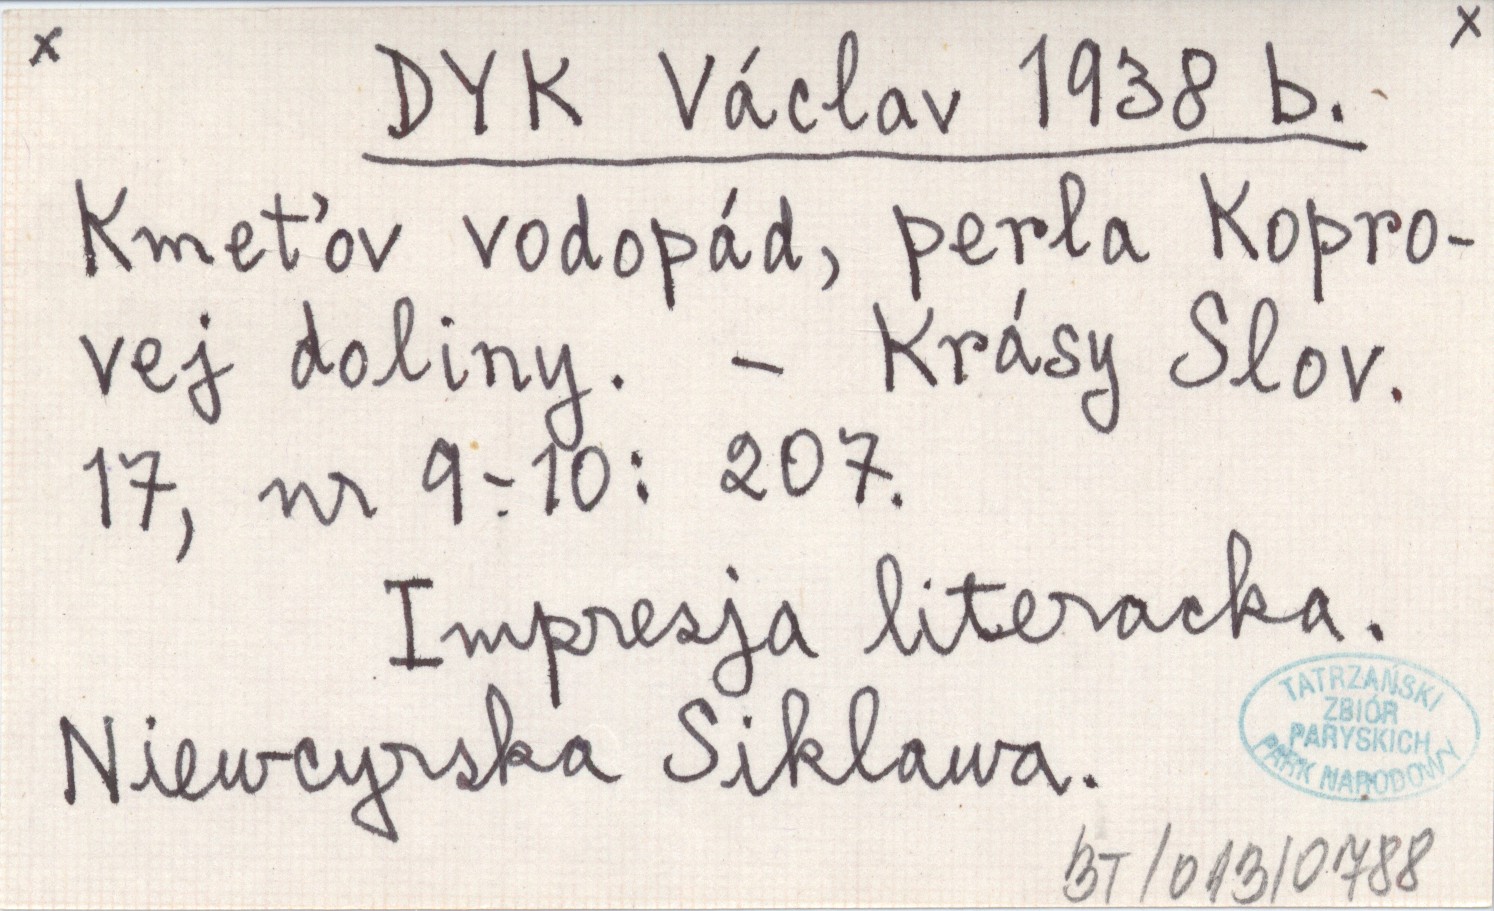 x x
DYK Václav 1938 b.
Kmeťov vodopád, perla Kopro-
vej doliny. - Krásy Slov.
17, nr 9-10: 207.
Impresja literacka.
Niewcyrska Siklawa.
TATRZAŃSKI
ZBIÓR
PARYSKICH
PARK NARODOWY
BT/013/0788